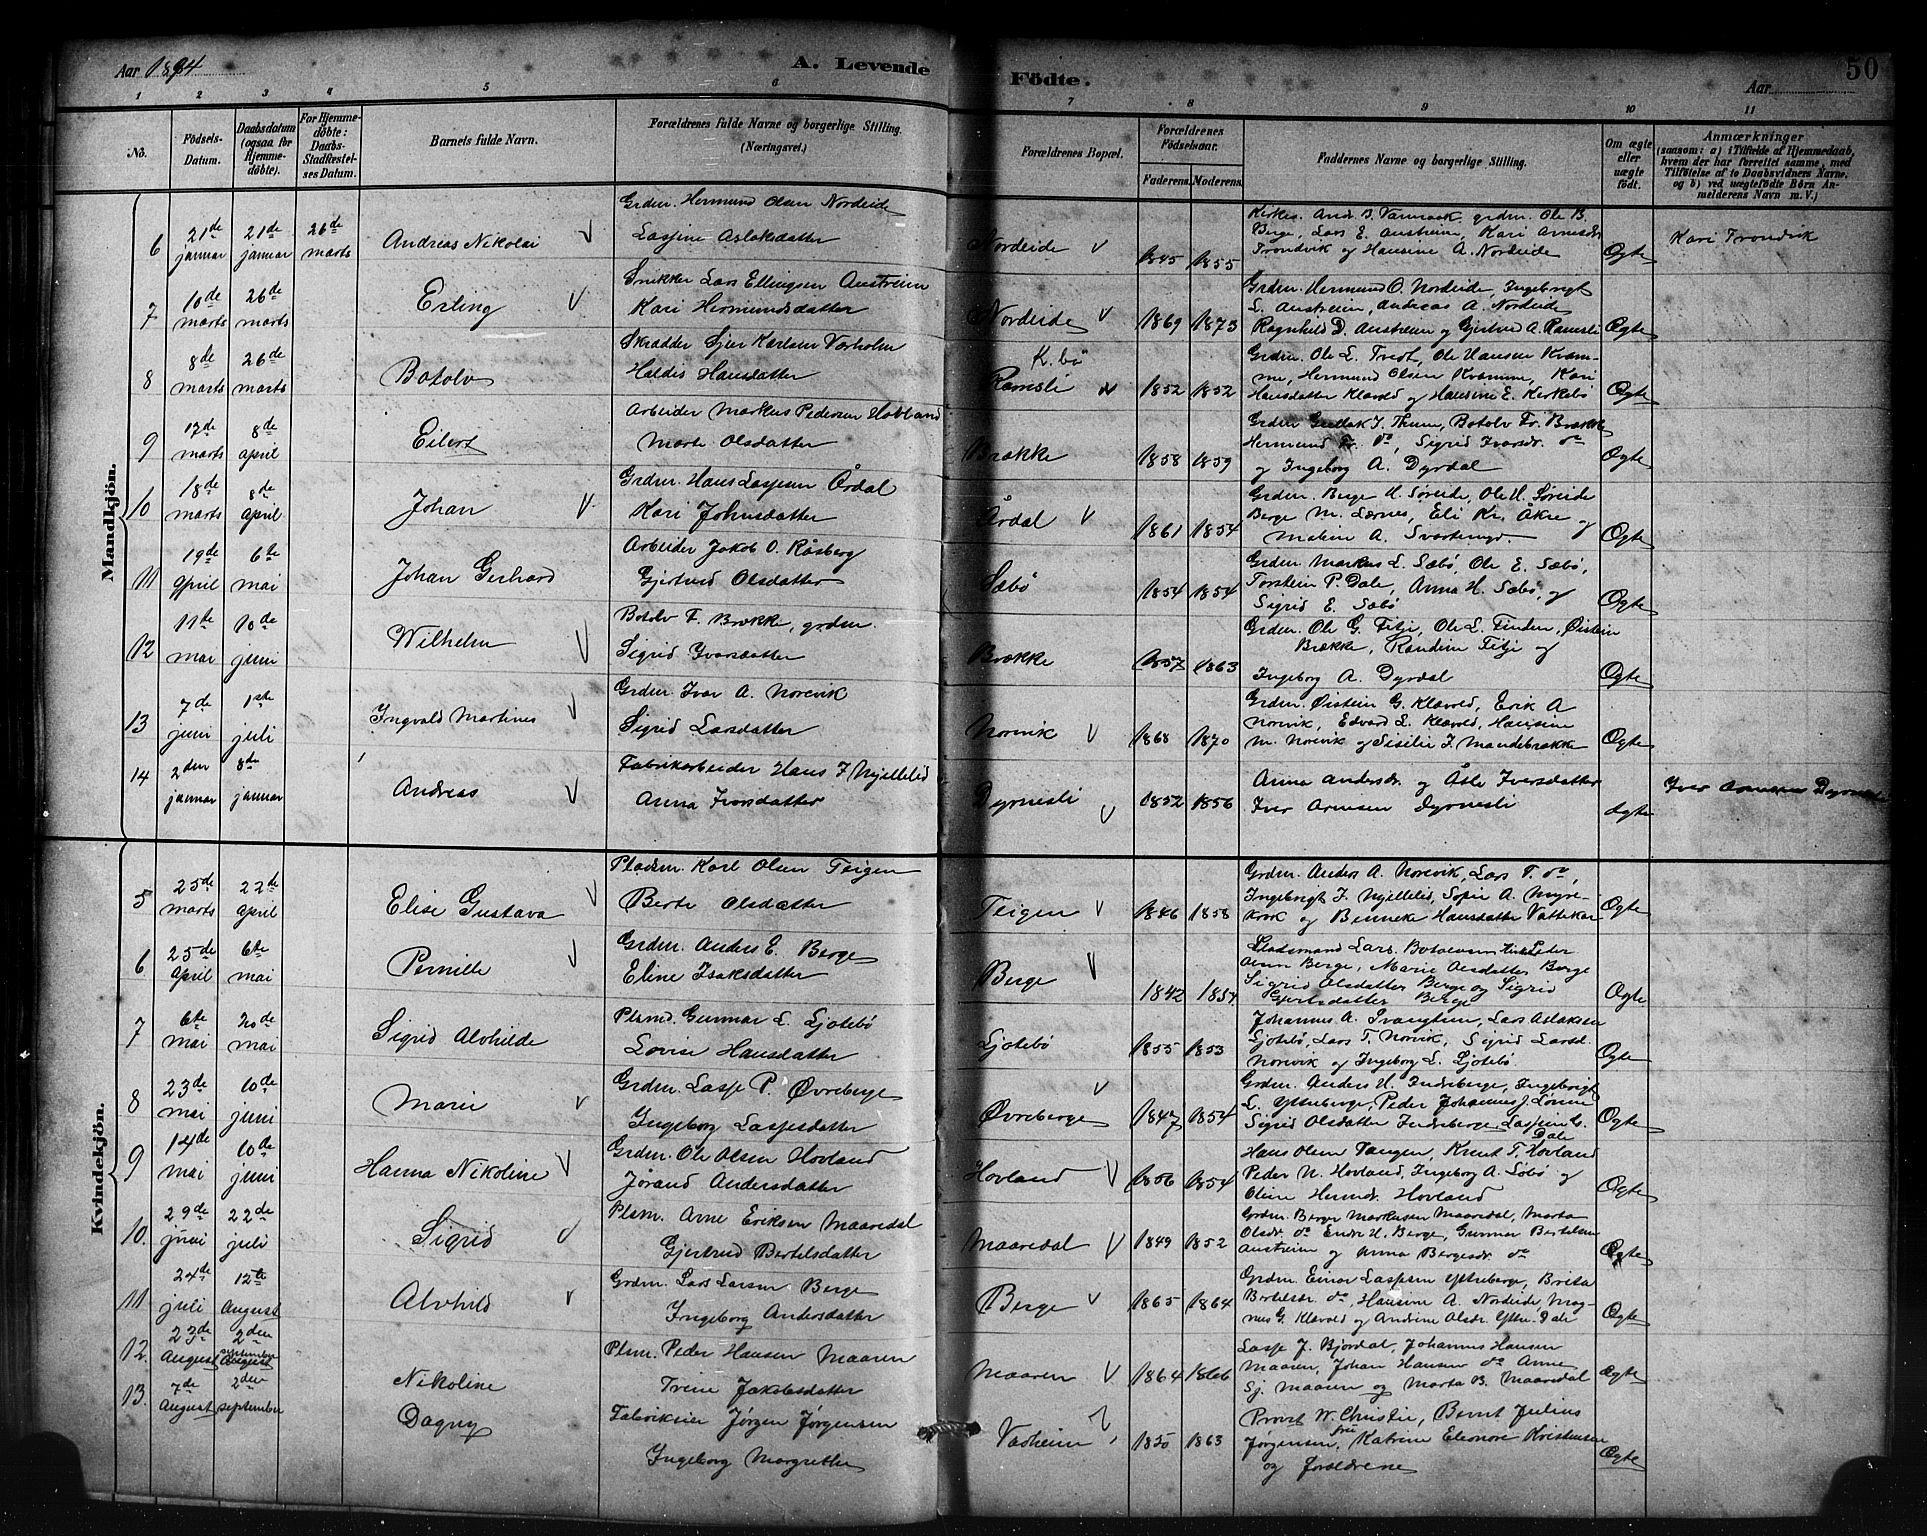 Aar 1894
A. Levende
Födte.
50
Aar
1 2 3 4 5 6 7 8 9 10 11
No.
Födsels-Datum.
Daabsdatum (ogsaa for Hjemme-döbte).
For Hjemme-döbte: Daabs-Stadfæstel-ses Datum.
Barnets fulde Navn.
Forældrenes fulde Navne og borgerlige Stilling. (Næringsvei.)
Forældrenes Bopæl.
Forældrenes Födselsaar.
Faderens. Moderens.
Faddernes Navne og borgerlige Stilling.
Om ægte eller uægte födt.
Anmærkninger
(saasom: a) i Tilfælde af Hjemmedaab, hvem der har forrettet samme, med Tilföielse af to Daabsvidners Navne. og b) ved uægtefödte Börn An-melderens Navn m. V.)
Mandkjön.
6 21de januar 21de januar 26de marts Andreas Nikolai
Grdm. Hermund Olsen Nordeide
Lasine Aslaksdatter
Nordeide 1845 1855
Kirkes. And. B. Varmraak, grdm. Ole B.
Berge, Lars E. Austreim, Kari Arnesdr
Trondvik og Hansine A. Nordeide
Ægte
Kari Trondvik
7 10de marts 26de marts Erling
Snikker Lars Ellingsen Austreim
Kari Hermundsdatter
Nordeide 1869 1873
Grdm. Hermund O. Nordeide, Ingebrigt
L. Austreim, Andreas A. Nordeide
Ragnhild D. Austreim og Gjertrud A. Ramsli
Ægte
8 8de marts 26de marts Botolv
Skrædder Sjur Karlsen Værholm
Haldis Hansdatter
K.bö
Ramsli 1852 1852
Grdm. Ole L. Tredt, Ole Hansen Kvam-
me, Hermund Olsen Kvamme, Kari
Hansdatter Klævold og Hansine E. Kirkebö
Ægte
9 17de marts 8de april Eilert
Arbeider Markus Pedersen Hovland
Marte Olsdatter
Brække 1858 1859
Grdm Gullak I. Thune, Botolv Fr. Brække
Hermund Fr. do, Sigrid Ivarsdr. do
og Ingeborg A. Dyrdal
Ægte
10 18de marts 8de April Johan
Grdm. Hans Lassesen Årdal
Kari Johnsdatter
Årdal 1861 1854
Grdm. Berge H. Søreide, Ole H. Søreide
Berge M. Lernes, Eli Kr. Åkre og
Maline A. Svartemyr.
Ægte
11 19de April 6te mai Johan Gerhard
Arbeider Jakob O. Råsberg
Gjertrud Olsdatter
Sæbö 1854 1854
Grdm. Markus L. Sæbö, Ole E. Sæbö,
Torstein P. Dale, Anna H. Sæbö, og
Sigrid E. Sæbö
Ægte
12 11te mai 10de juni Wilhelm
Botolv F. Brække, grdm.
Sigrid Ivarsdatter
Brække 1857 1863
Grdm. Ole G. Fitje, Ole L. Finden, Øistein
Brække, Randine Fitje og
Ingeborg A. Dyrdal
Ægte
13 7de juni 1ste juli Ingvald Martines
Grdm. Ivar A. Norevik
Sigrid Larsdatter
Norevik 1868 1870
Grdm. Øistein G. Klævold, Erik A
Norevik, Edvard L. Klævold, Hansine
M. Norevik og Siselie I. Mandebrække
Ægte
14 2den januar 8de januar Andreas
Fabrikarbeider Hans I. Mjellelid
Anna Ivarsdatter
Dyrnesli 1852 1856
Anna Andersdr. og Åsle Iversdatter
Iver Arnesen Dyrnesli
Ægte
Iver Arnesen Dyrnesli
Kvindekjön.
5 25de marts 22de April Elise Gustava
Pladsm. Karl Olsen Teigen
Berte Olsdatter
Teigen 1846 1858
Grdm. Anders A. Norevik, Lars T. do,
Ingebrigt I. Mjellelid, Sofie A. Myre-
krok og Binneke Hansdatter Vattekar
Ægte
6 25de April 6te mai Pernille
Grdm. Anders E. Berge
Eline Isaksdatter
Berge 1842 1854
Pladsmand Lars Botolvsen Peder
Olsen Berge, Marie Olsdatter Berge
Sigrid Olsdatter Berge og Sigrid
Gjertsdatter Berge
Ægte
7 6te mai 20de mai Sigrid Alvhilde
Plsmd. Gunnar L. Ljotebö
Lovise Hansdatter
Ljotebö 1855 1853
Johannes A. Svangtun, Lars Aslaksen
Ljotebö, Lars T. Norvik, Sigrid Larsd.
Norevik og Ingeborg L. Ljotebö.
Ægte
8 23de mai 10de juni Marie
Grdm. Lasse P. Øvreberge
Ingeborg Lassesdatter
Øvreberge 1847 1854
Grdm. Anders H. Indreberge, Ingebrigt
L. Ytreberge, Peder Johannes J. Løseen
Sigrid Olsdatter Indreberge, Lassine C.
Dale
Ægte
9 14de mai 10de juni Hanna Nikoline
Grdm. Ole Olsen Hovland
Jórand Andersdatter
Hovland 1856 1854
Hans Olsen Tangen, Knut T. Hovland
Peder N. Hovland, Ingeborg A. Søbö og
Oline Hermdr. Hovland
Ægte
10. 29de juni 22de juli Sigrid
Plsm. Arne Eriksen Maaredal
Gjertrud Bertelsdatter
Maaredal 1849 1852
Grdm. Berge Markusen Maaredal, Marta
Olsdr. do Endre H. Berge, Gunnar Bertelsen
Austreim og Anna Bergesdr. do
Ægte
11 24de juli 12te August Alvhild
Grdm. Lars Larsen Berge
Ingeborg Andersdatter
Berge 1865 1864
Grdm. Einar Lassesen Ytreberge, Brita
Bertelsdr. do, Hansine A. Nordeide, Mag-
nus G. Klævold og Andrine Olsdr. Ytre-Dale
Ægte
12. 23de August 2den september August Nikoline
Plsm. Peder Hansen Maaren
Trine Jakobsdatter
Maaren 1864 1866
Lasse J. Bjordal, Johannes Hansen
Maaren, Johan Hansen do Anne
Sj. Maaren og Marta B. Maaredal
Ægte
13. 7de August 2den september Dagny
Fabrikeier Jørgen Jørgensen
Ingeborg Margrethe
Vadheim 1850 1863
Provst W. Christie, Bernt Julius
Jørgensen, fru Katrine Eleonore Kristensen
og forældrene
Ægte